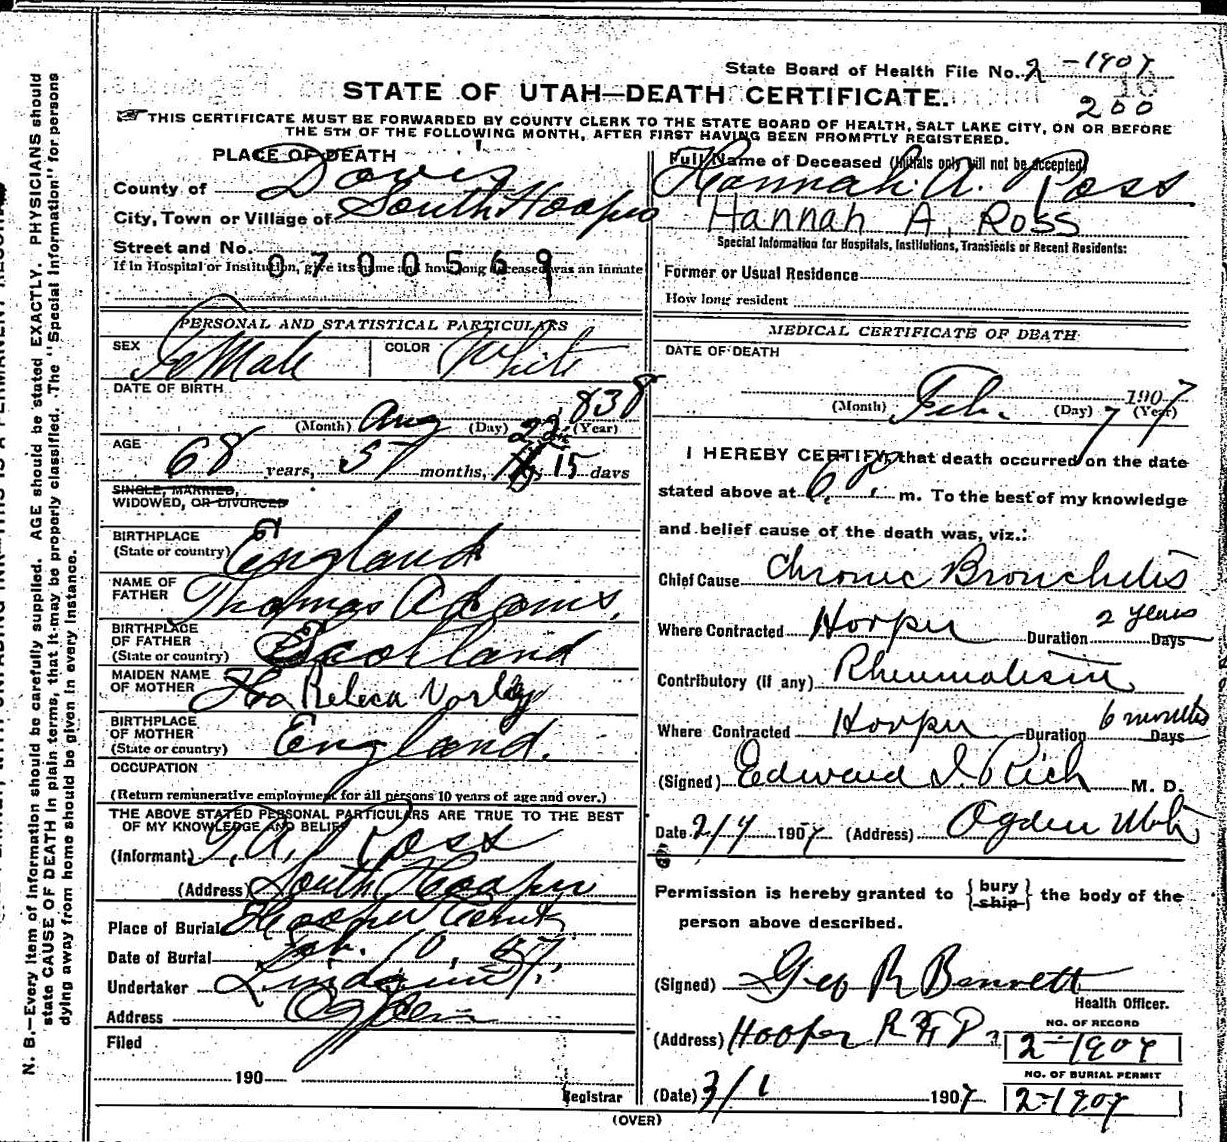 State Board of Health File No. 2-1907
16
200
STATE OF UTAH—DEATH CERTIFICATE.
THIS CERTIFICATE MUST BE FORWARDED BY COUNTY CLERK TO THE STATE BOARD OF HEALTH, SALT LAKE CITY, ON OR BEFORE
THE 5TH OF THE FOLLOWING MONTH, AFTER FIRST HAVING BEEN PROMPTLY REGISTERED.
PLACE OF DEATH
County of Davis
City, Town or Village of South Hooper
Street and No.
If in Hospital or Institution, give its name and how long deceased was an inmate
0700569
PERSONAL AND STATISTICAL PARTICULARS
SEX FeMale COLOR White
DATE OF BIRTH
(Month) Aug (Day) 22 (Year) 1838
AGE
68 years, 5 months, 15 days
SINGLE, MARRIED,
WIDOWED, OR DIVORCED
BIRTHPLACE
(State or country) England
NAME OF
FATHER Thomas Adams,
BIRTHPLACE
OF FATHER
(State or country) Scotland
MAIDEN NAME
OF MOTHER
BIRTHPLACE
OF MOTHER
(State or country) England.
OCCUPATION
(Return remunerative employment for all persons 10 years of age and over.)
THE ABOVE STATED PERSONAL PARTICULARS ARE TRUE TO THE BEST
OF MY KNOWLEDGE AND BELIEF
(Informant) Ross
(Address) South Hooper
Place of Burial Hooper
Date of Burial Feb. 10,
Undertaker Lindquist
Address Ogden
Filed
190
Registrar
Full Name of Deceased (Initials only will not be accepted)
Hannah A. Ross
Hannah A. Ross
Special Information for Hospitals, Institutions, Transients or Recent Residents:
Former or Usual Residence
How long resident
MEDICAL CERTIFICATE OF DEATH
DATE OF DEATH
(Month) Feb. (Day) 7 1907 (Year)
I HEREBY CERTIFY, that death occurred on the date
stated above at 6 P. m. To the best of my knowledge
and belief cause of the death was, viz.:
Chief Cause Chronic Bronchitis
Where Contracted Hooper Duration 2 years Days
Contributory (if any) Rheumatism
Where Contracted Hooper Duration 6 months Days
(Signed) Edward I. Rich M. D.
Date 2/9 1907 (Address) Ogden Utah
Permission is hereby granted to {bury ship} the body of the
person above described.
(Signed) Geo R Bennett
Health Officer.
(Address) Hooper RFD
NO. OF RECORD
2-1907
NO. OF BURIAL PERMIT
2-1907
(Date) 3/1 1907
(OVER)
N. B.—Every item of information should be carefully supplied. AGE should be stated EXACTLY. PHYSICIANS should
state CAUSE OF DEATH in plain terms, that it may be properly classified. The "Special Information" for persons
dying away from home should be given in every instance.